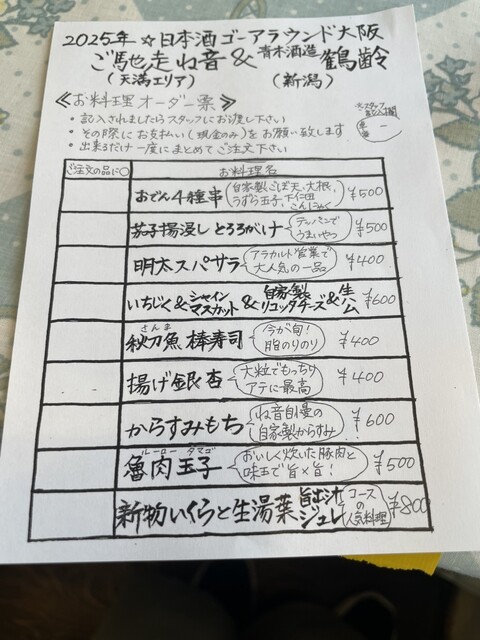 2025年 ☆日本酒ゴーアラウンド大阪
ご馳走ね音 & 青木酒造 鶴齢
(天満エリア) (新潟)
≪お料理オーダー票≫
・記入されましたらスタッフにお渡し下さい
・その際にお支払い(現金のみ)をお願い致します
・出来るだけ一度にまとめてご注文下さい
※スタッフ記入欄
ご注文の品に○ お料理名
おでん4種串 自家製ごぼ天、大根、うずら玉子、下仁田こんにゃく ¥500
茄子揚浸し とろろがけ テッパンでうまいやつ ¥500
明太スパサラ アラカルト営業で大人気の一品 ¥400
いちじく&シャインマスカット&自家製リコッタチーズ&生ハム ¥600
さんま
秋刀魚 棒寿司 今が旬!脂のりのり ¥400
揚げ銀杏 大粒でもっちりアテに最高 ¥400
からすみもち ね音自慢の自家製からすみ ¥600
ルーロー タマゴ
魯肉玉子 おいしく炊いた豚肉と味玉で旨×旨! ¥500
新物いくらと生湯葉 旨出汁ジュレ コースの人気料理 ¥800